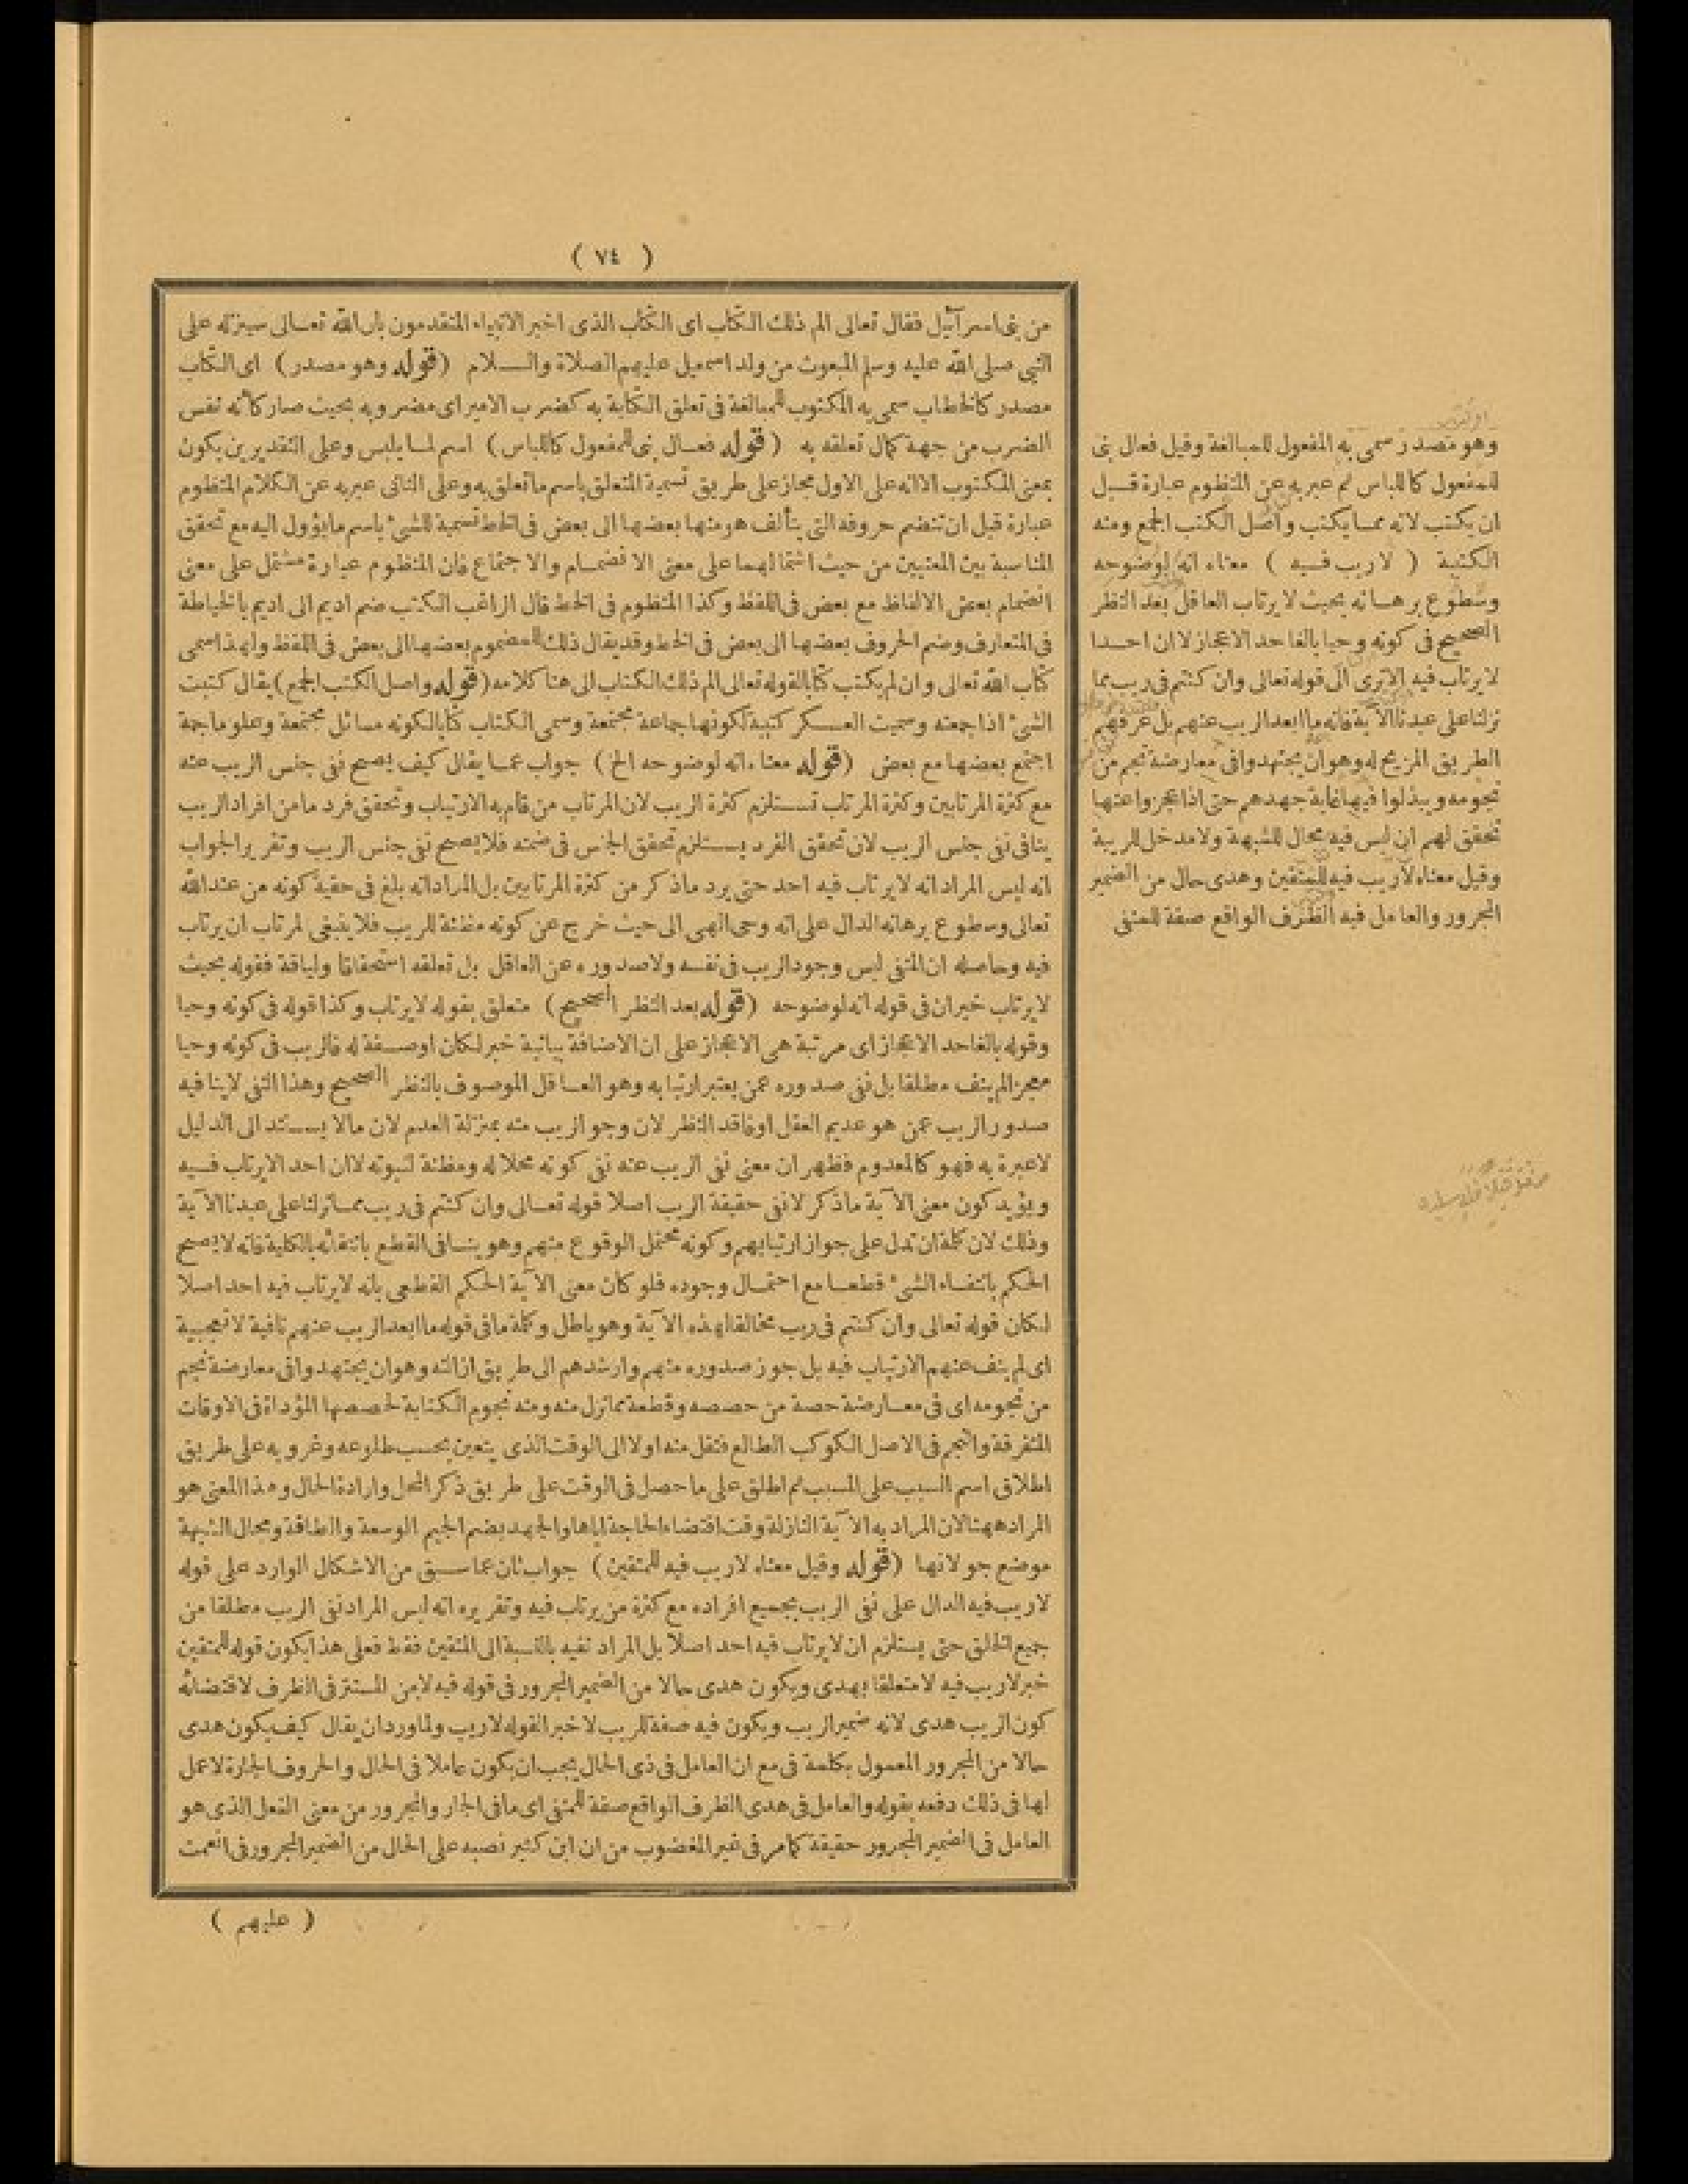 ( ٧٤ )
من بنى اسرآئيل فقال تعالى الم ذلك الكتاب اى الكتاب الذى اخبر الانبياء المتقدمون بان الله تعالى سينزله على
النبى صلى الله عليه وسلم المبعوث من ولد اسمعيل عليهم الصلاة والسلام (قوله وهو مصدر) اى الكتاب
مصدر كالخطاب سمى به المكتوب للمبالغة فى تعلق الكتابة به كضرب الامير اى مضروبه بحيث صار كأنه نفس
الضرب من جهة كمال تعلقه به (قوله فعال بنى للمفعول كاللباس) اسم لما يلبس وعلى التقديرين يكون
بمعنى المكتوب الاانه على الاول مجاز على طريق تسمية المتعلق باسم ماتعلق به وعلى الثانى عبربه عن الكلام المنظوم
عبارة قبل ان تنضم حروفه التى يتألف هو منها بعضها الى بعض فى الخط تسمية للشئ باسم مايؤول اليه مع تحقق
المناسبة بين المعنيين من حيث اشتمالهما على معنى الانضمام والاجتماع فان المنظوم عبارة مشتمل على معنى
انضمام بعض الالفاظ مع بعض فى اللفظ وكذا المنظوم فى الخط قال الراغب الكتب ضم اديم الى اديم بالخياطة
فى المتعارف وضم الحروف بعضها الى بعض فى الخط وقد يقال ذلك للمضموم بعضها الى بعض فى اللفظ ولهذا سمى
كتاب الله تعالى وان لم يكتب كتابا لقوله تعالى الم ذلك الكتاب الى هنا كلامه (قوله واصل الكتب الجمع) يقال كتبت
الشئ اذا جمعته وسميت العسكر كتيبة لكونها جماعة مجتمعة وسمى الكتاب كتابا لكونه مسائل مجتمعة وعلوما جمة
اجتمع بعضها مع بعض (قوله معناه انه لوضوحه الخ) جواب عما يقال كيف يصح نفى جنس الريب عنه
مع كثرة المرتابين وكثرة المرتاب تستلزم كثرة الريب لان المرتاب من قام به الارتياب وتحقق فرد ما من افراد الريب
ينافى نفى جنس الريب لان تحقق الفرد يستلزم تحقق الجنس فى ضمنه فلا يصح نفى جنس الريب وتقرير الجواب
انه ليس المراد انه لايرتاب فيه احد حتى يرد ماذكر من كثرة المرتابين بل المراد انه بلغ فى حقية كونه من عند الله
تعالى وسطوع برهانه الدال على انه وحى الهى الى حيث خرج عن كونه مظنة للريب فلا ينبغى لمرتاب ان يرتاب
فيه وحاصله ان المنفى ليس وجود الريب فى نفسه ولا صدوره عن العاقل بل تعلقه استحقاقا ولياقة فقوله بحيث
لايرتاب خبر ان فى قوله انه لوضوحه (قوله بعد النظر الصحيح) متعلق بقوله لايرتاب وكذا قوله فى كونه وحيا
وقوله بالغا حد الاعجاز اى مرتبة هى الاعجاز على ان الاضافة بيانية خبر لكان اوصفة له فالريب فى كونه وحيا
معجزا لم ينف مطلقا بل نفى صدوره عمن يعتبر ارتيابه وهو العاقل الموصوف بالنظر الصحيح وهذا النفى لاينافيه
صدور الريب عمن هو عديم العقل اوفاقد النظر لان وجو الريب منه بمنزلة العدم لان مالا يستند الى الدليل
لاعبرة به فهو كالمعدوم فظهر ان معنى نفى الريب عنه نفى كونه محلا له ومظنة لثبوته لاان احد الايرتاب فيه
ويؤيد كون معنى الآية ماذكر لانفى حقيقة الريب اصلا قوله تعالى وان كنتم فى ريب مما نزلنا على عبدنا الآية
وذلك لان كلمة ان تدل على جواز ارتيابهم وكونه محتمل الوقوع منهم وهو ينافى القطع بانتفائه بالكلية فانه لايصح
الحكم بانتفاء الشئ قطعا مع احتمال وجوده فلو كان معنى الآية الحكم القطعى بانه لايرتاب فيه احد اصلا
لكان قوله تعالى وان كنتم فى ريب مخالفا لهذه الآية وهو باطل وكلمة ما فى قوله ما ابعد الريب عنهم نافية لاتعجبية
اى لم ينف عنهم الارتياب فيه بل جوز صدوره منهم وارشدهم الى طريق ازالته وهو ان يجتهدوا فى معارضة نجم
من نجومه اى فى معارضة حصة من حصصه وقطعة مما نزل منه ومنه نجوم الكتابة لحصصها المؤداة فى الاوقات
المتفرقة والنجم فى الاصل الكوكب الطالع فنقل منه اولا الى الوقت الذى يتعين بحسب طلوعه وغروبه على طريق
اطلاق اسم السبب على المسبب ثم اطلق على ما حصل فى الوقت على طريق ذكر المحل وارادة الحال وهذا المعنى هو
المراد ههنا لان المراد به الآية النازلة وقت اقتضاء الحاجة اياها والجهد بضم الجيم الوسعة والطاقة ومجال الشبهة
موضع جولانها (قوله وقيل معناه لاريب فيه للمتقين) جواب ثان عما سبق من الاشكال الوارد على قوله
لاريب فيه الدال على نفى الريب بجميع افراده مع كثرة من يرتاب فيه وتقريره انه ليس المراد نفى الريب مطلقا من
جميع الخلق حتى يستلزم ان لايرتاب فيه احد اصلا بل المراد نفيه بالنسبة الى المتقين فقط فعلى هذا يكون قوله للمتقين
خبر لاريب فيه لامتعلقا بهدى ويكون هدى حالا من الضمير المجرور فى قوله فيه لامن المستتر فى الظرف لاقتضائه
كون الريب هدى لانه ضمير الريب ويكون فيه صفة للريب لاخبرا لقوله لاريب ولما ورد ان يقال كيف يكون هدى
حالا من المجرور المعمول بكلمة فى مع ان العامل فى ذى الحال يجب ان يكون عاملا فى الحال والحروف الجارة لاعمل
لها فى ذلك دفعه بقوله والعامل فى هدى الظرف الواقع صفة للمنفى اى ما فى الجار والمجرور من معنى الفعل الذى هو
العامل فى الضمير المجرور حقيقة كما مر فى غير المغضوب من ان ابن كثير نصبه على الحال من الضمير المجرور فى انعمت
( عليهم )
وهو مصدر سمى به المفعول للمبالغة وقيل فعال بنى
للمفعول كاللباس ثم عبر به عن المنظوم عبارة قبل
ان يكتب لانه مما يكتب واصل الكتب الجمع ومنه
الكتيبة ( لاريب فيه ) معناه انه لوضوحه
وسطوع برهانه بحيث لايرتاب العاقل بعد النظر
الصحيح فى كونه وحيا بالغا حد الاعجاز لا ان احدا
لايرتاب فيه الاترى الى قوله تعالى وان كنتم فى ريب مما
نزلنا على عبدنا الآية فانه ما ابعد الريب عنهم بل عرفهم
الطريق المزيح له وهو ان يجتهدوا فى معارضة نجم من
نجومه ويبذلوا فيها غاية جهدهم حتى اذا عجزوا عنها
تحقق لهم ان ليس فيه مجال للشبهة ولا مدخل للريبة
وقيل معناه لاريب فيه للمتقين وهدى حال من الضمير
المجرور والعامل فيه الظرف الواقع صفة للمنفى